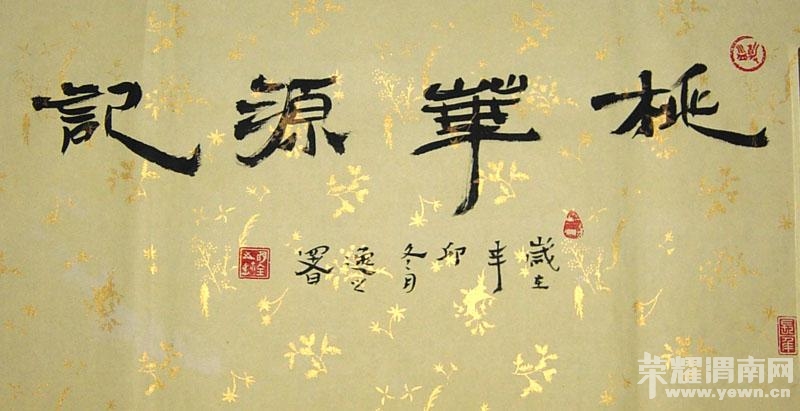 桃華源記
歲在辛卯冬月逸之署
荣耀渭南网
www.yewn.cn